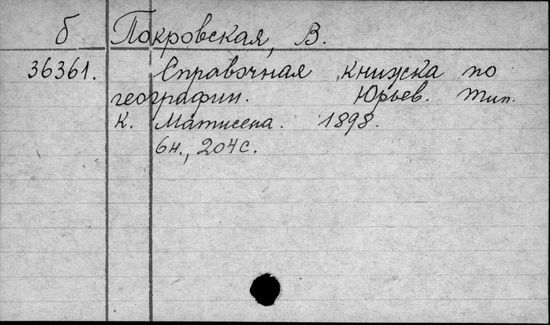 б Покровская, В.
36361. Справочная книжка по
географии. Юрьев. тип.
К. Матисена. 1898.
6н., 204с.